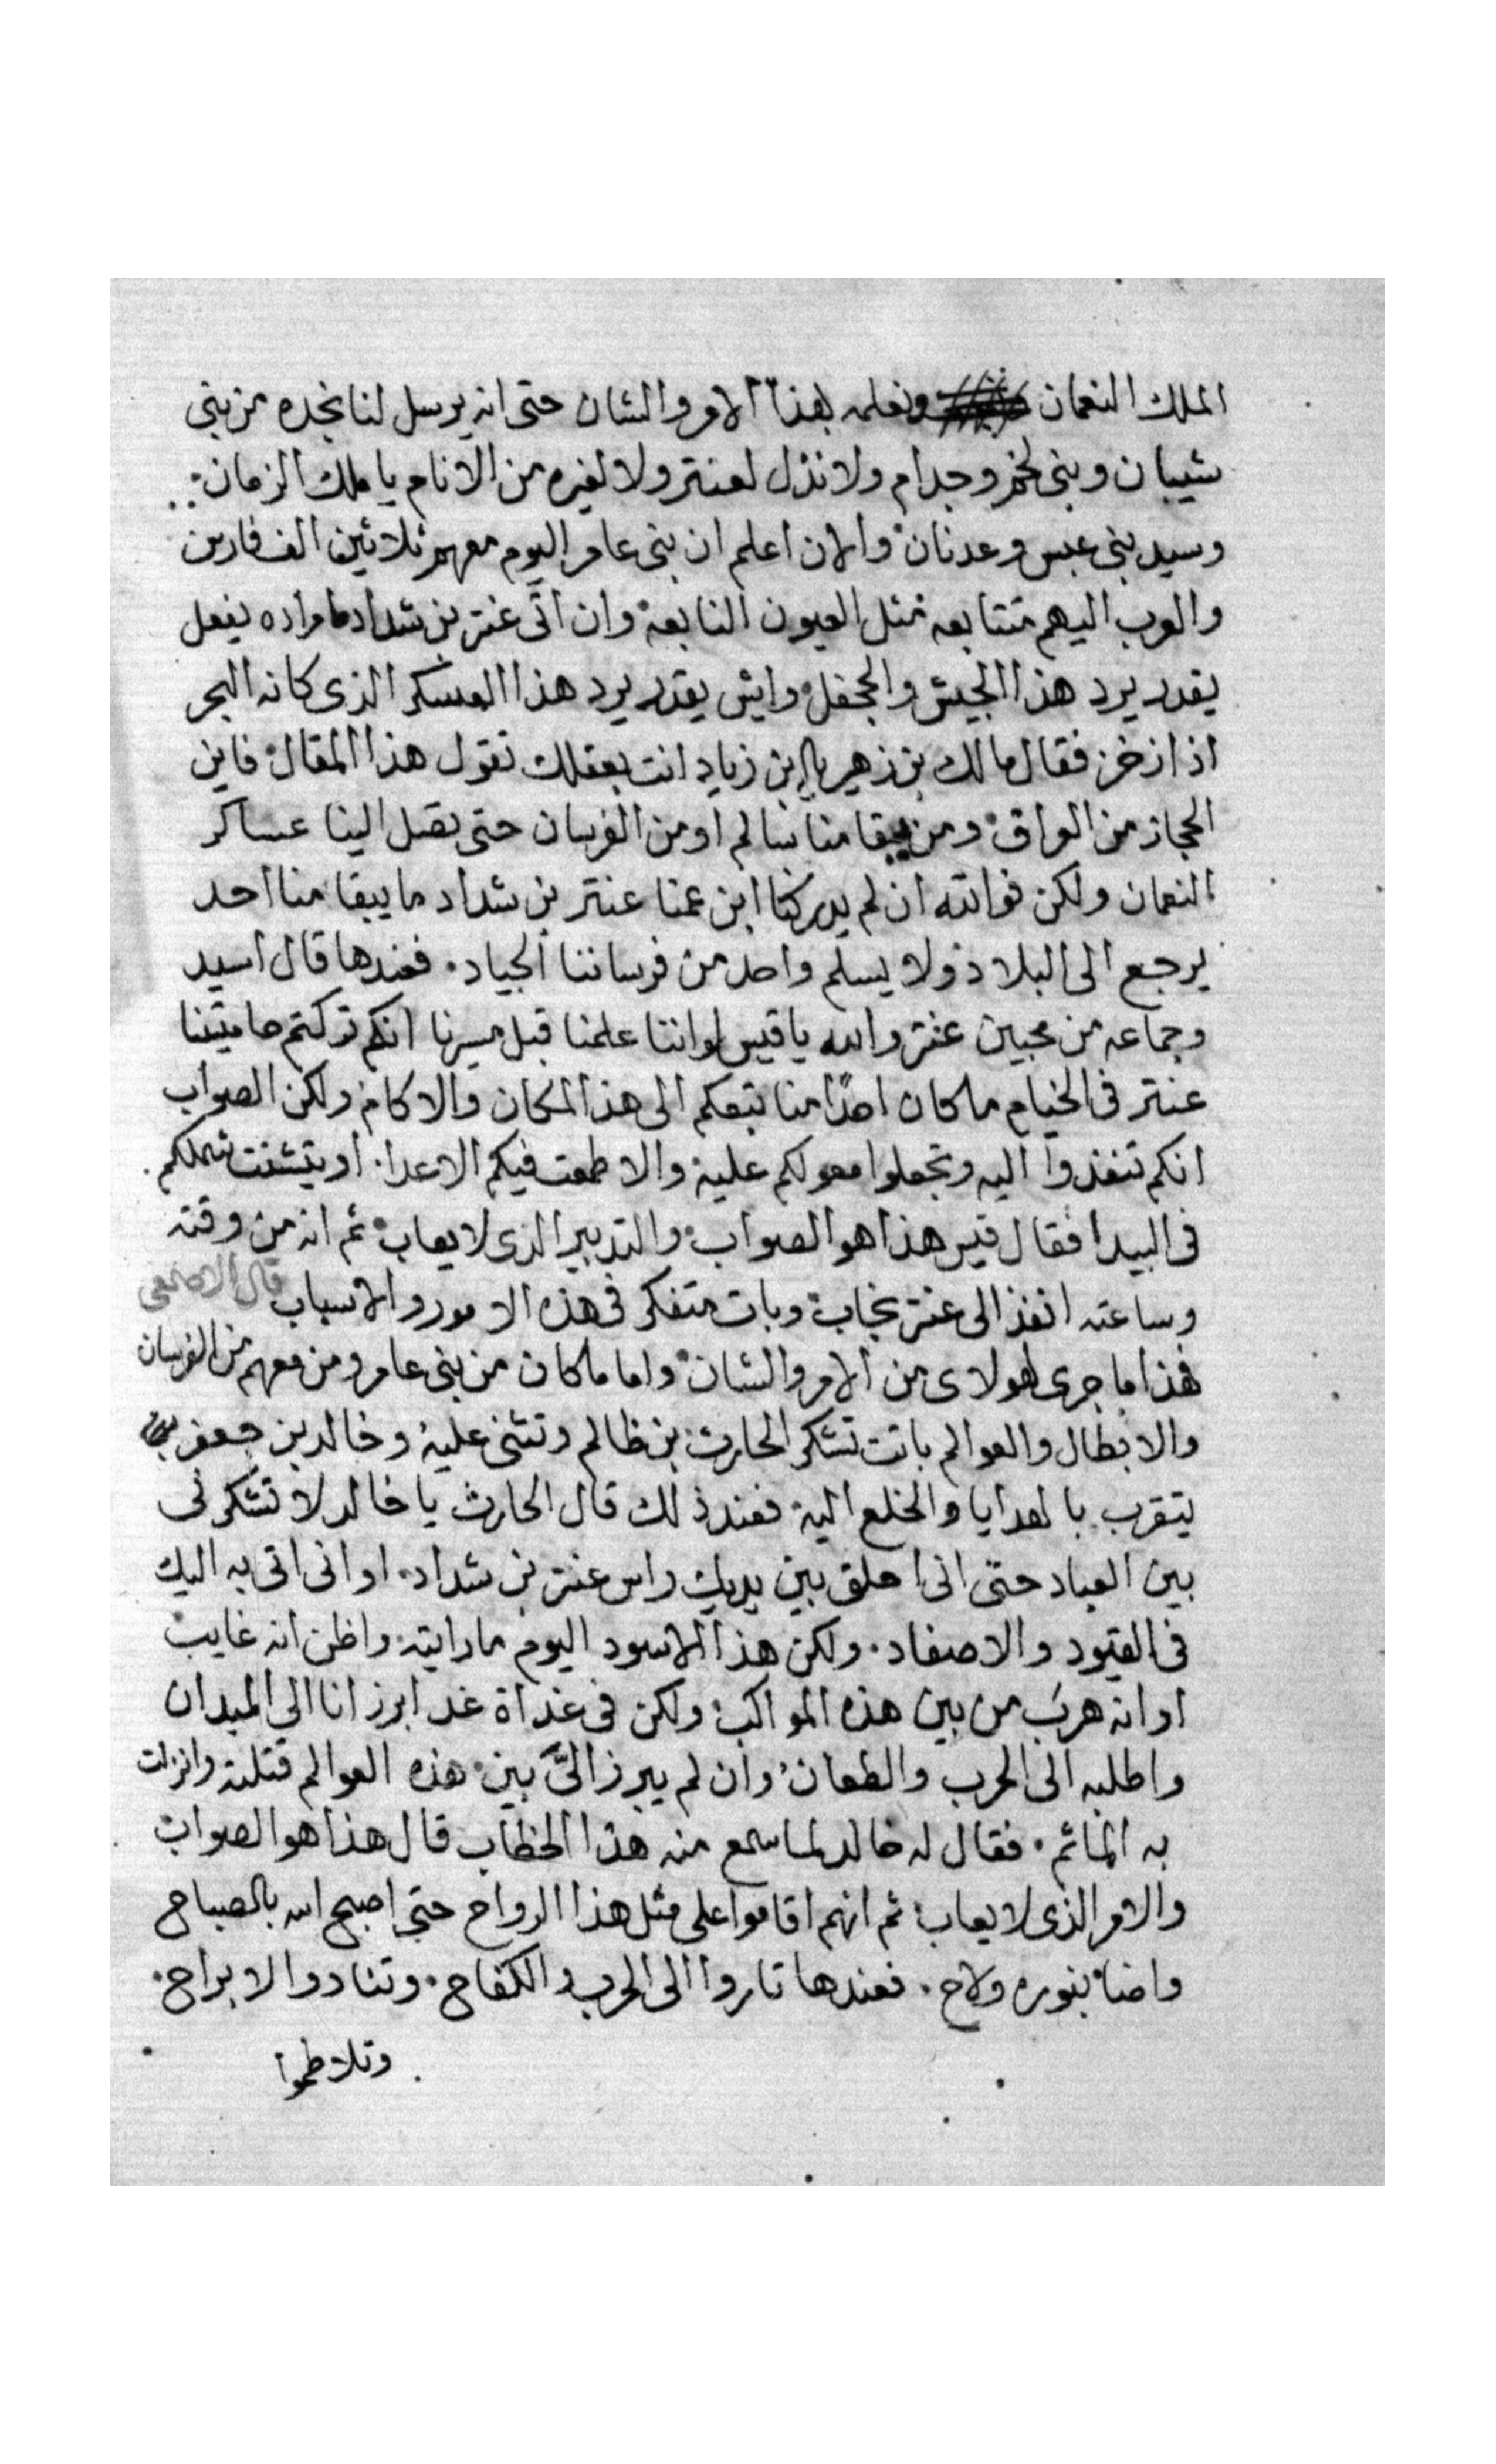 الملك النعمان ونعلمه بهذا الامر والشان حتى انه يرسل لنا نجده من بنى
شيبان وبنى لخم وجدام ولا نذل لعنتر ولا لغيره من الانام يا ملك الزمان
وسيد بنى عبس وعدنان والان اعلم ان بنى عامر اليوم معهم ثلاثين الف فارس
والعرب اليهم متتابعه مثل العيون النابعة وان اتى عنتر بن شداد ما مراده يفعل
يقدر يرد هذا الجيش والجحفل وايش يقدر يرد هذا العسكر الذى كانه البحر
اذا زخر فقال مالك بن زهير يا ابن زياد انت بعقلك تقول هذا المقال فاين
الحجاز من العراق ومن يبقا منا سالم او من الفرسان حتى تصل الينا عساكر
النعمان ولكن فوالله ان لم يدركنا ابن عمنا عنتر بن شداد ما يبقا منا احد
يرجع الى البلاد ولا يسلم واحد من فرساننا الجياد فعندها قال اسيد
وجماعه من محبين عنتر والله يا قيس لو اننا علمنا قبل مسيرنا انكم تركتم حاميتنا
عنتر فى الخيام ما كان احدًا منا تبعكم الى هذا المكان والاكام ولكن الصواب
انكم تنفذوا اليه وتجعلوا معولكم عليه والا طمعت فيكم الاعدا او يتشتت شملكم
فى البيدا فقال قيس هذا هو الصواب والتدبير الذى لا يعاب ثم انه من وقته
وساعته انفذ الى عنتر نجاب وبات متفكر فى هذه الامور والاسباب قال الاصمعى
هذا ما جرى لهولاى من الامر والشان واما ما كان من بنى عامر ومن معهم من الفرسان
والابطال والعوالم باتت تشكر الحارث بن ظالم وتثنى عليه وخالد بن جعفر
يتقرب بالهدايا والخلع اليه فعند ذلك قال الحارث يا خالد لا تشكرنى
بين العباد حتى انى احلق بين يديك راس عنتر بن شداد او انى اتى به اليك
فى القيود والاصفاد ولكن هذا الاسود اليوم ما رايته واظن انه غايب
او انه هرب من بين هذه المواكب ولكن فى غداة غد ابرز انا الى الميدان
واطلبه الى الحرب والطعان وان لم يبرز الىّ بين هذه العوالم قتلته وانزلت
به الماتم فقال له خالد لما سمع منه هذا الخطاب قال هذا هو الصواب
والامر الذى لا يعاب ثم انهم اقاموا على مثل هذا الرواح حتى اصبح الله بالصباح
واضا بنوره ولاح فعندها تاروا الى الحرب والكفاح وتنادوا لابراح
وتلاطموا